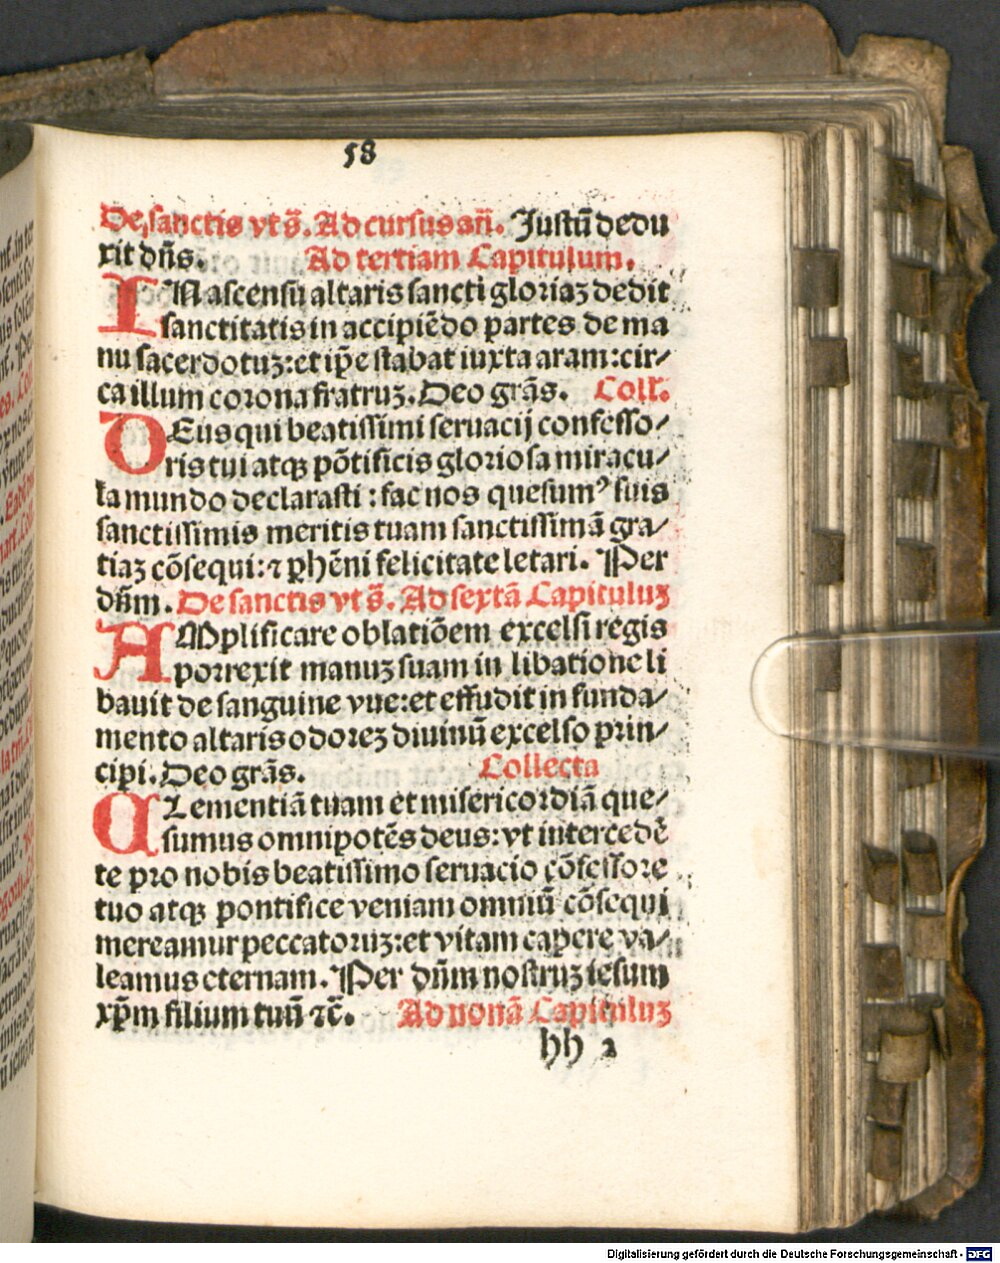 58
De sanctis vt s̄. Ad cursus añ. Justū dedu
xit dñs. Ad tertiam Capitulum.
IN ascensu altaris sancti gloriaꝫ dedit
sanctitatis in accipiēdo partes de ma
nu sacerdotuꝫ: et ip̄e stabat iuxta aram: cir/
ca illum corona fratruꝫ. Deo grās. Coll.
DEus qui beatissimi seruacij confesso/
ris tui atqꝫ pōtificis gloriosa miracu/
la mundo declarasti: fac nos quesumꝰ suis
sanctissimis meritis tuam sanctissimā gra/
tiaꝫ cōsequi: ⁊ ꝑhēni felicitate letari. Per
dn̄m. De sanctis vt s̄. Ad sextā Capituluꝫ
AMplificare oblatiōem excelsi regis
porrexit manuꝫ suam in libatione li
bauit de sanguine vue: et effudit in funda/
mento altaris odoreꝫ diuinū excelso prin/
cipi. Deo grās. Collecta
CLementiā tuam et misericordiā que/
sumus omnipotēs deus: vt intercedē
te pro nobis beatissimo seruacio cōfessore
tuo atqꝫ pontifice veniam omniū cōsequi
mereamur peccatoruꝫ: et vitam capere va/
leamus eternam. Per dn̄m nostruꝫ iesum
xp̄m filium tuū ⁊c̄. Ad nonā Capituluꝫ
hh 2
Digitalisierung gefördert durch die Deutsche Forschungsgemeinschaft - DFG